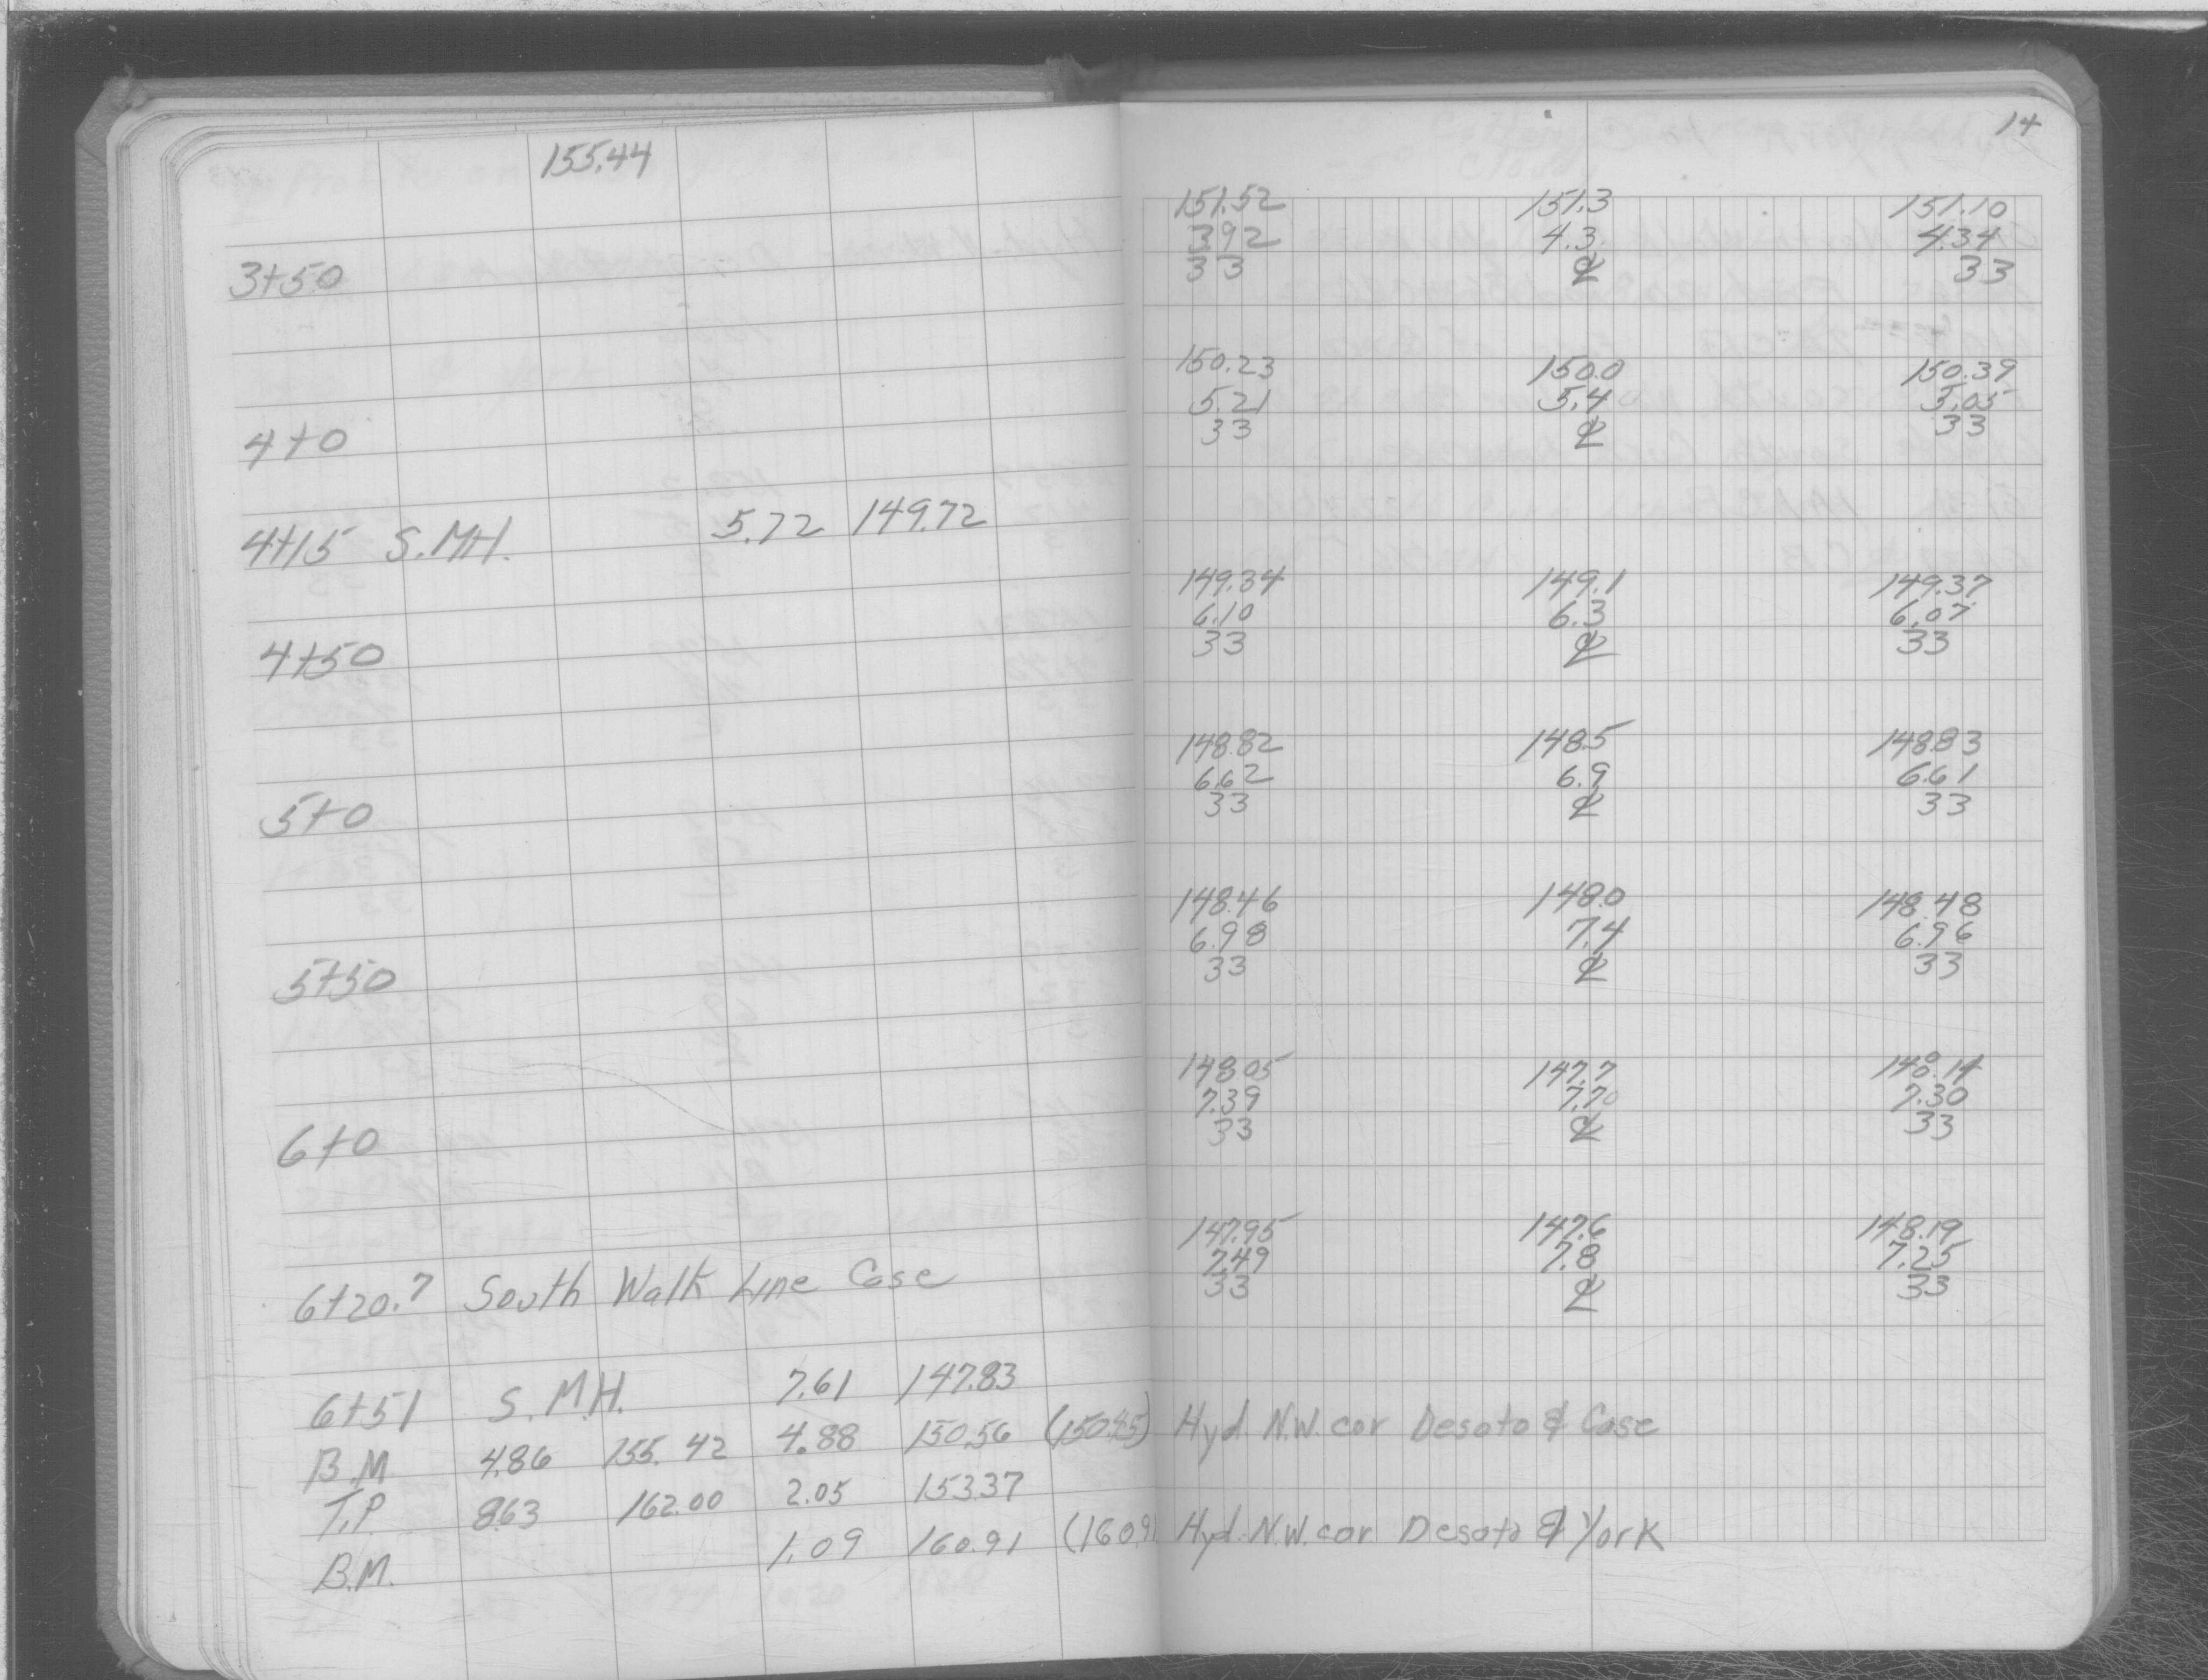 155.44
14
151.52 151.3 151.10
3.92 4.3 4.34
3+50 33 ℄ 33
150.23 150.0 150.39
5.21 5.4 5.05
4+0 33 ℄ 33
4+15 S.MH. 5.72 149.72
149.34 149.1 149.37
6.10 6.3 6.07
4+50 33 ℄ 33
148.82 148.5 148.83
6.62 6.9 6.61
5+0 33 ℄ 33
148.46 148.0 148.48
6.98 7.4 6.96
5+50 33 ℄ 33
148.05 147.7 148.14
7.39 7.70 7.30
6+0 33 ℄ 33
147.95 147.6 148.19
7.49 7.8 7.25
6+20.7 South Walk Line Case 33 ℄ 33
6+51 S.M.H. 7.61 147.83
B.M 4.86 155.42 4.88 150.56 Hyd. N.W. cor Desoto & Case
T.P. 8.63 162.00 2.05 153.37
B.M. 1.09 160.91 (160.91 Hyd. N.W. cor. Desoto & York